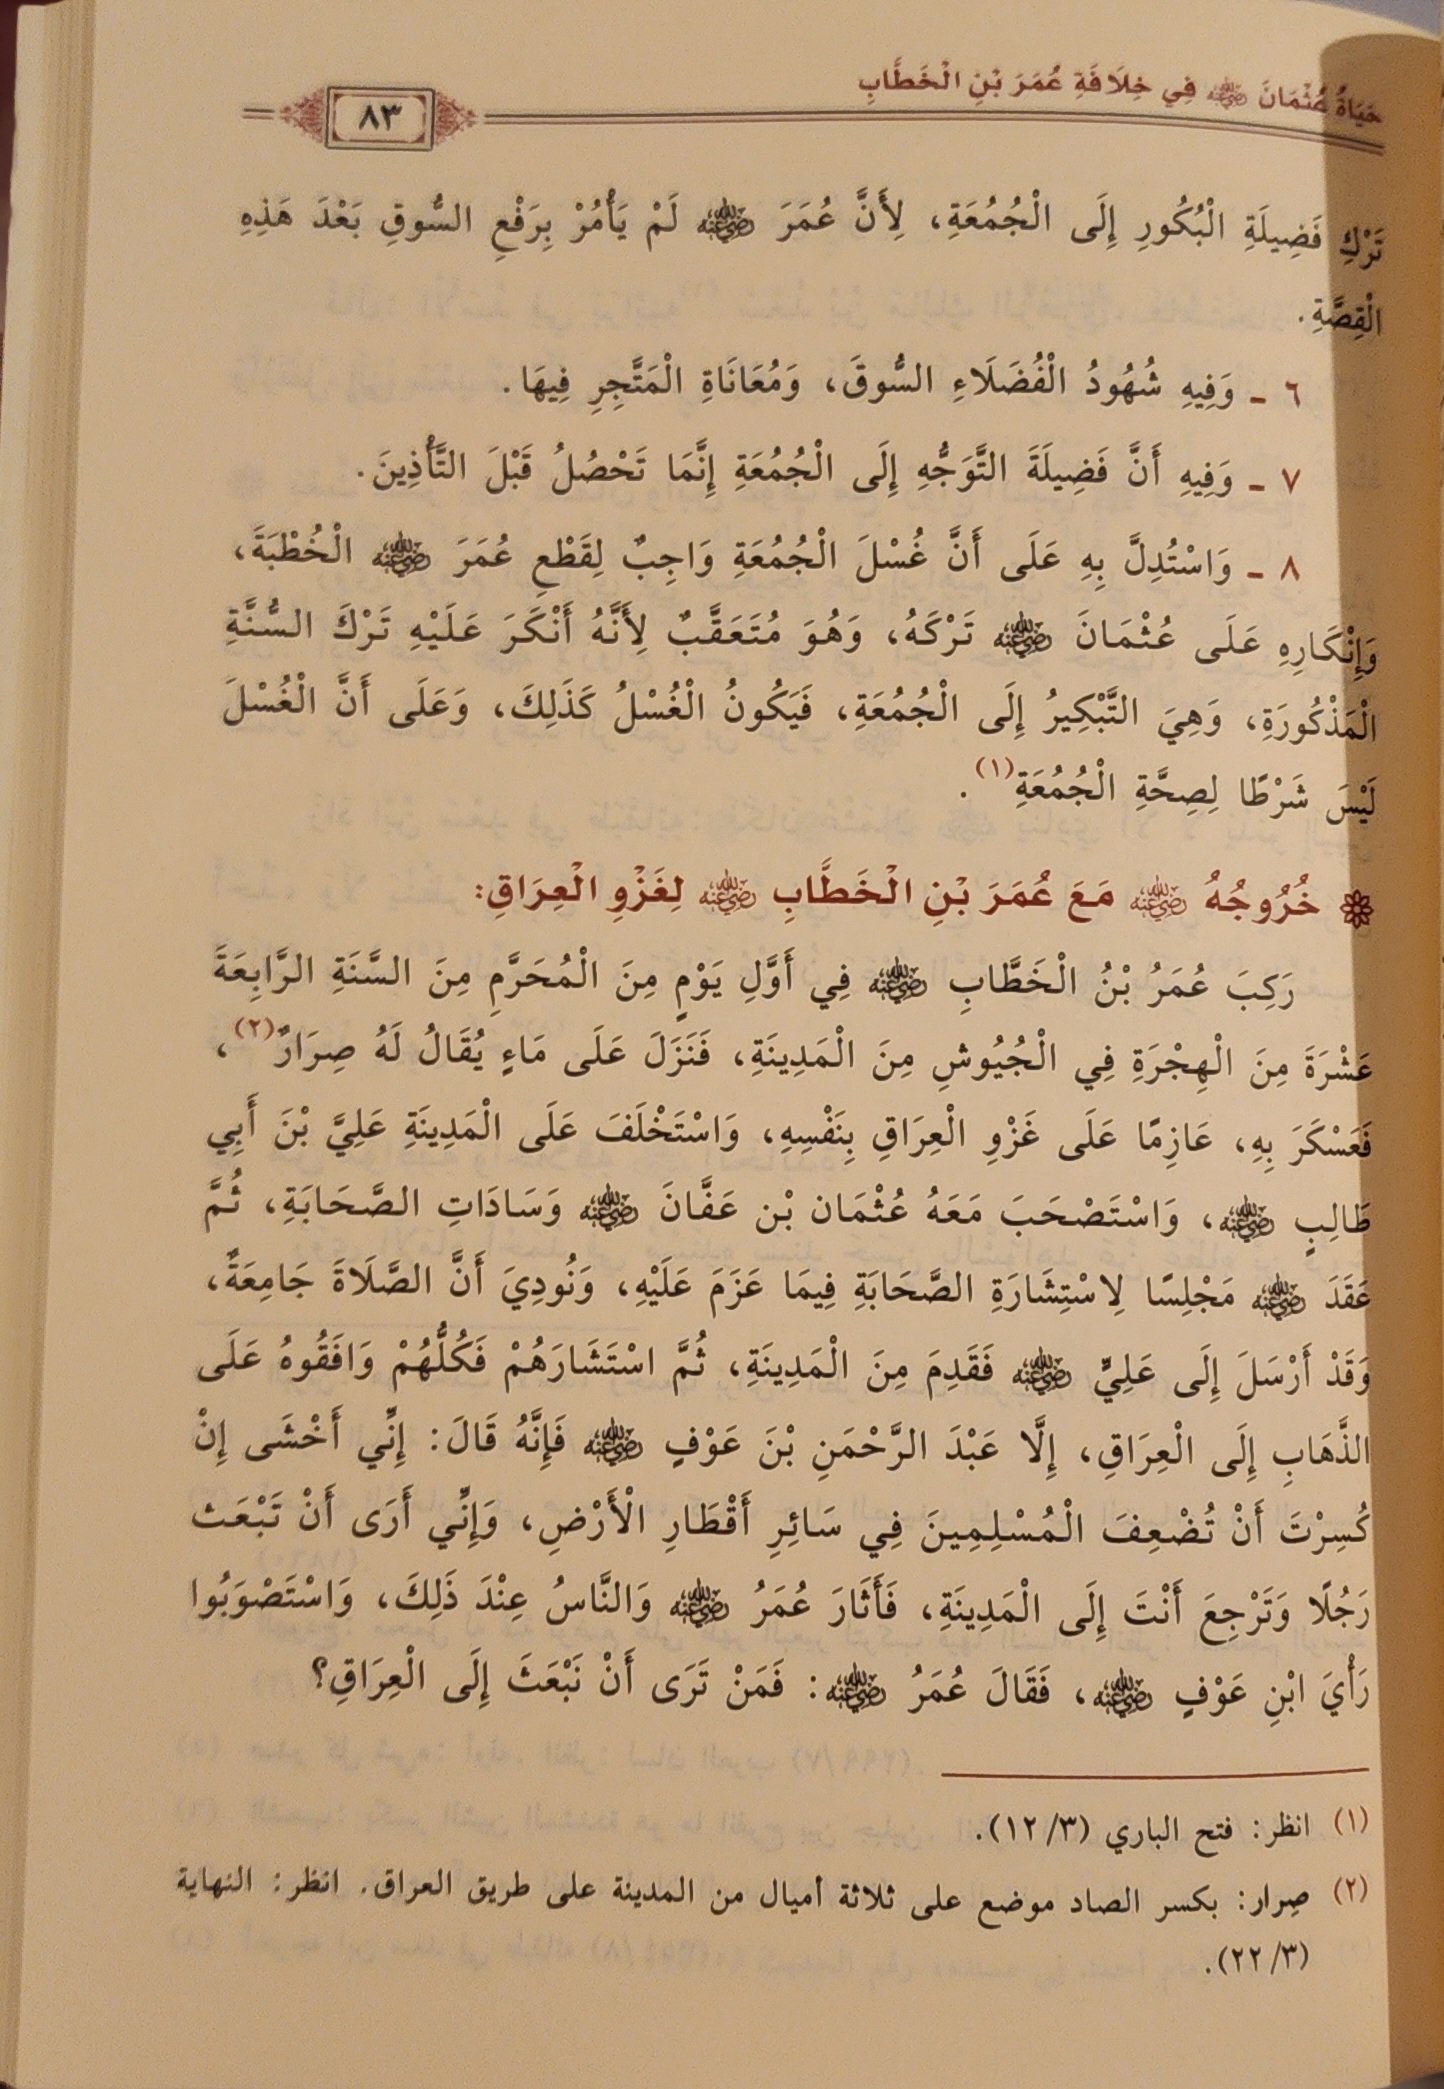 حَيَاةُ عُثْمَانَ رضي الله عنه فِي خِلَافَةِ عُمَرَ بْنِ الْخَطَّابِ
٨٣
تَرْكِ فَضِيلَةِ الْبُكُورِ إِلَى الْجُمُعَةِ، لِأَنَّ عُمَرَ رضي الله عنه لَمْ يَأْمُرْ بِرَفْعِ السُّوقِ بَعْدَ هَذِهِ
الْقِصَّةِ.
٦ ـ وَفِيهِ شُهُودُ الْفُضَلَاءِ السُّوقَ، وَمُعَانَاةِ الْمَتَّجِرِ فِيهَا.
٧ ـ وَفِيهِ أَنَّ فَضِيلَةَ التَّوَجُّهِ إِلَى الْجُمُعَةِ إِنَّمَا تَحْصُلُ قَبْلَ التَّأْذِينَ.
٨ ـ وَاسْتُدِلَّ بِهِ عَلَى أَنَّ غُسْلَ الْجُمُعَةِ وَاجِبٌ لِقَطْعِ عُمَرَ رضي الله عنه الْخُطْبَةَ،
وَإِنْكَارِهِ عَلَى عُثْمَانَ رضي الله عنه تَرْكَهُ، وَهُوَ مُتَعَقَّبٌ لِأَنَّهُ أَنْكَرَ عَلَيْهِ تَرْكَ السُّنَّةِ
الْمَذْكُورَةِ، وَهِيَ التَّبْكِيرُ إِلَى الْجُمُعَةِ، فَيَكُونُ الْغُسْلُ كَذَلِكَ، وَعَلَى أَنَّ الْغُسْلَ
لَيْسَ شَرْطًا لِصِحَّةِ الْجُمُعَةِ(١).
خُرُوجُهُ رضي الله عنه مَعَ عُمَرَ بْنِ الْخَطَّابِ رضي الله عنه لِغَزْوِ الْعِرَاقِ:
رَكِبَ عُمَرُ بْنُ الْخَطَّابِ رضي الله عنه فِي أَوَّلِ يَوْمٍ مِنَ الْمُحَرَّمِ مِنَ السَّنَةِ الرَّابِعَةَ
عَشْرَةَ مِنَ الْهِجْرَةِ فِي الْجُيُوشِ مِنَ الْمَدِينَةِ، فَنَزَلَ عَلَى مَاءٍ يُقَالُ لَهُ صِرَارٌ(٢)،
فَعَسْكَرَ بِهِ، عَازِمًا عَلَى غَزْوِ الْعِرَاقِ بِنَفْسِهِ، وَاسْتَخْلَفَ عَلَى الْمَدِينَةِ عَلِيَّ بْنَ أَبِي
طَالِبٍ رضي الله عنه، وَاسْتَصْحَبَ مَعَهُ عُثْمَان بْن عَفَّانَ رضي الله عنه وَسَادَاتِ الصَّحَابَةِ، ثُمَّ
عَقَدَ رضي الله عنه مَجْلِسًا لِاسْتِشَارَةِ الصَّحَابَةِ فِيمَا عَزَمَ عَلَيْهِ، وَنُودِيَ أَنَّ الصَّلَاةَ جَامِعَةٌ،
وَقَدْ أَرْسَلَ إِلَى عَلِيٍّ رضي الله عنه فَقَدِمَ مِنَ الْمَدِينَةِ، ثُمَّ اسْتَشَارَهُمْ فَكُلُّهُمْ وَافَقُوهُ عَلَى
الذَّهَابِ إِلَى الْعِرَاقِ، إِلَّا عَبْدَ الرَّحْمَنِ بْنَ عَوْفٍ رضي الله عنه فَإِنَّهُ قَالَ: إِنِّي أَخْشَى إِنْ
كُسِرْتَ أَنْ تُضْعِفَ الْمُسْلِمِينَ فِي سَائِرِ أَقْطَارِ الْأَرْضِ، وَإِنِّي أَرَى أَنْ تَبْعَث
رَجُلًا وَتَرْجِعَ أَنْتَ إِلَى الْمَدِينَةِ، فَأَثَارَ عُمَرُ رضي الله عنه وَالنَّاسُ عِنْدَ ذَلِكَ، وَاسْتَصْوَبُوا
رَأْيَ ابْنِ عَوْفٍ رضي الله عنه، فَقَالَ عُمَرُ رضي الله عنه: فَمَنْ تَرَى أَنْ نَبْعَثَ إِلَى الْعِرَاقِ؟
(١) انظر: فتح الباري (١٢/٣).
(٢) صِرار: بكسر الصاد موضع على ثلاثة أميال من المدينة على طريق العراق. انظر: النهاية
(٢٢/٣).